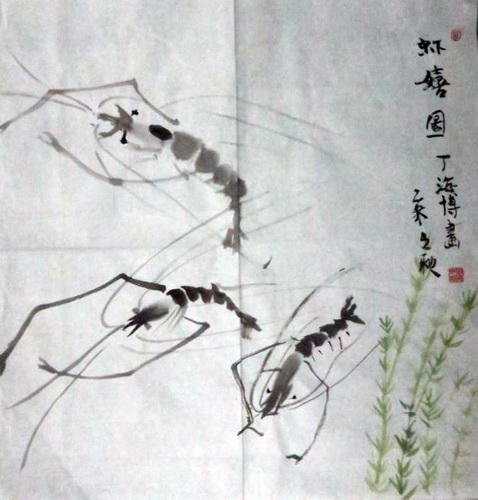 虾嬉图
丁海博画
乙未之秋